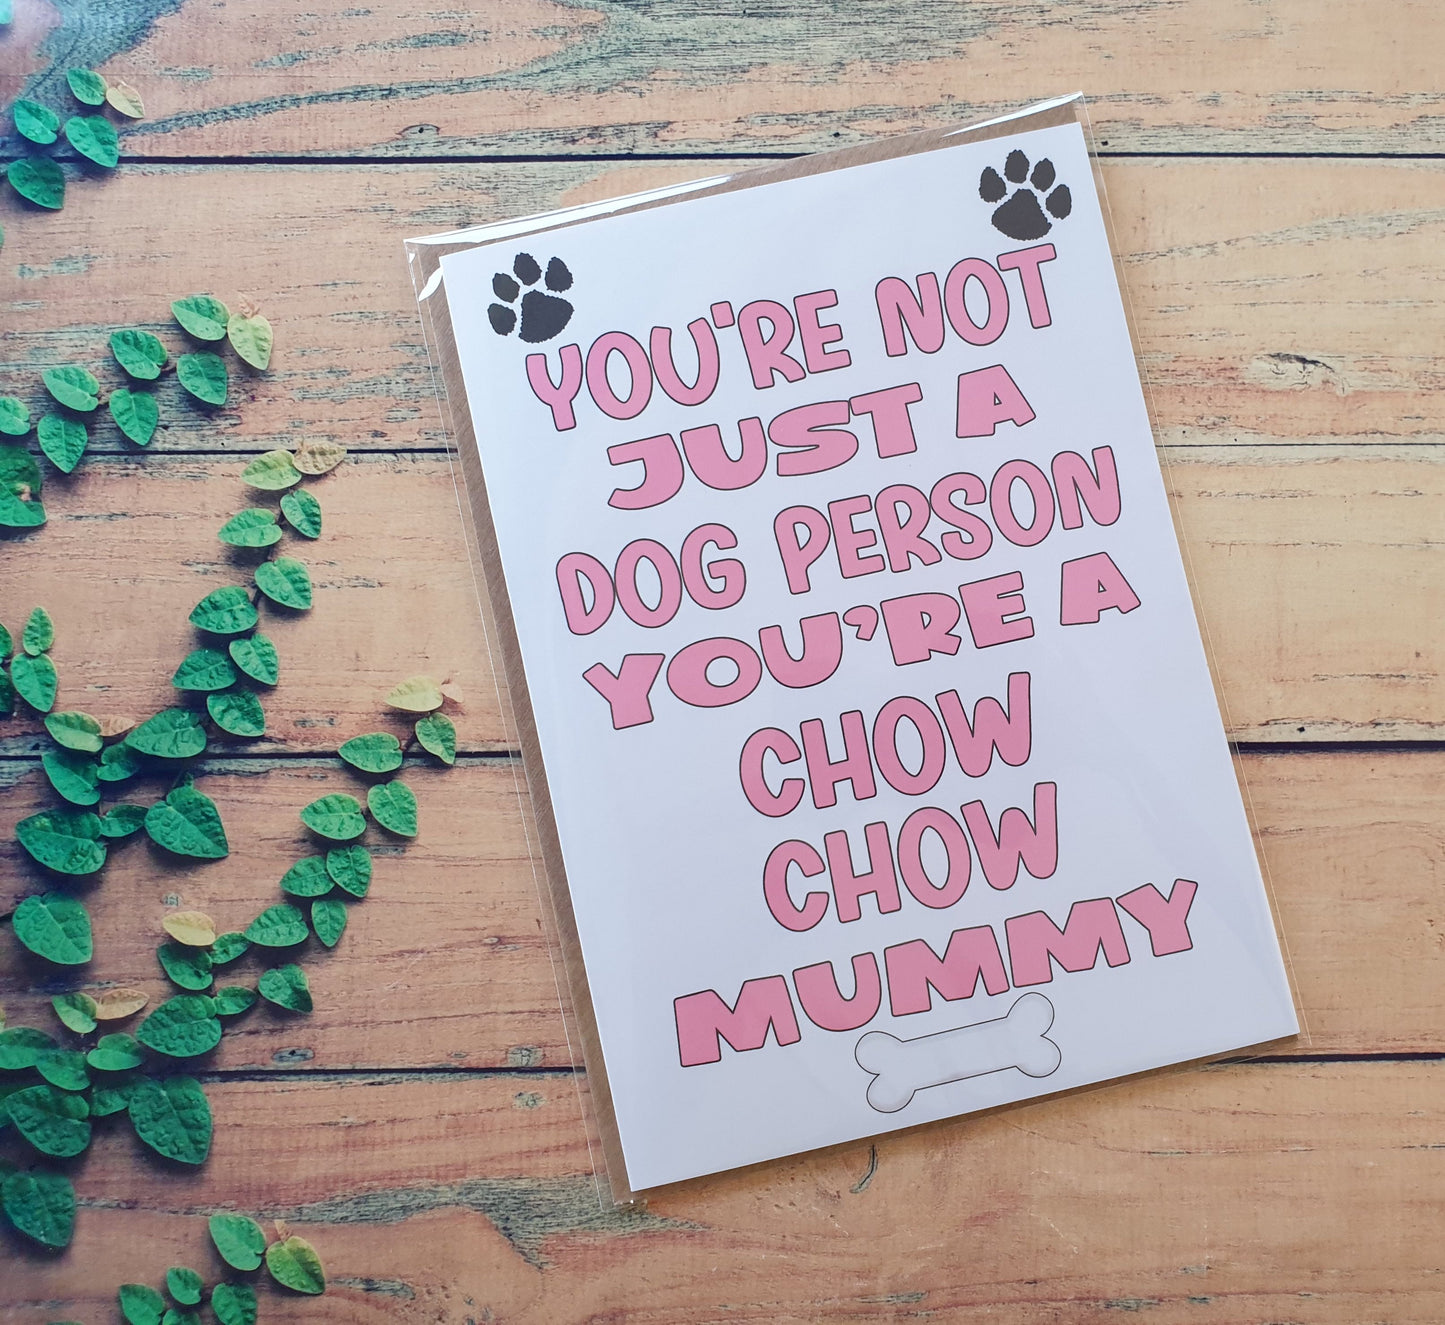 YOU'RE NOT
JUST A
DOG PERSON
YOU'RE A
CHOW
CHOW
MUMMY